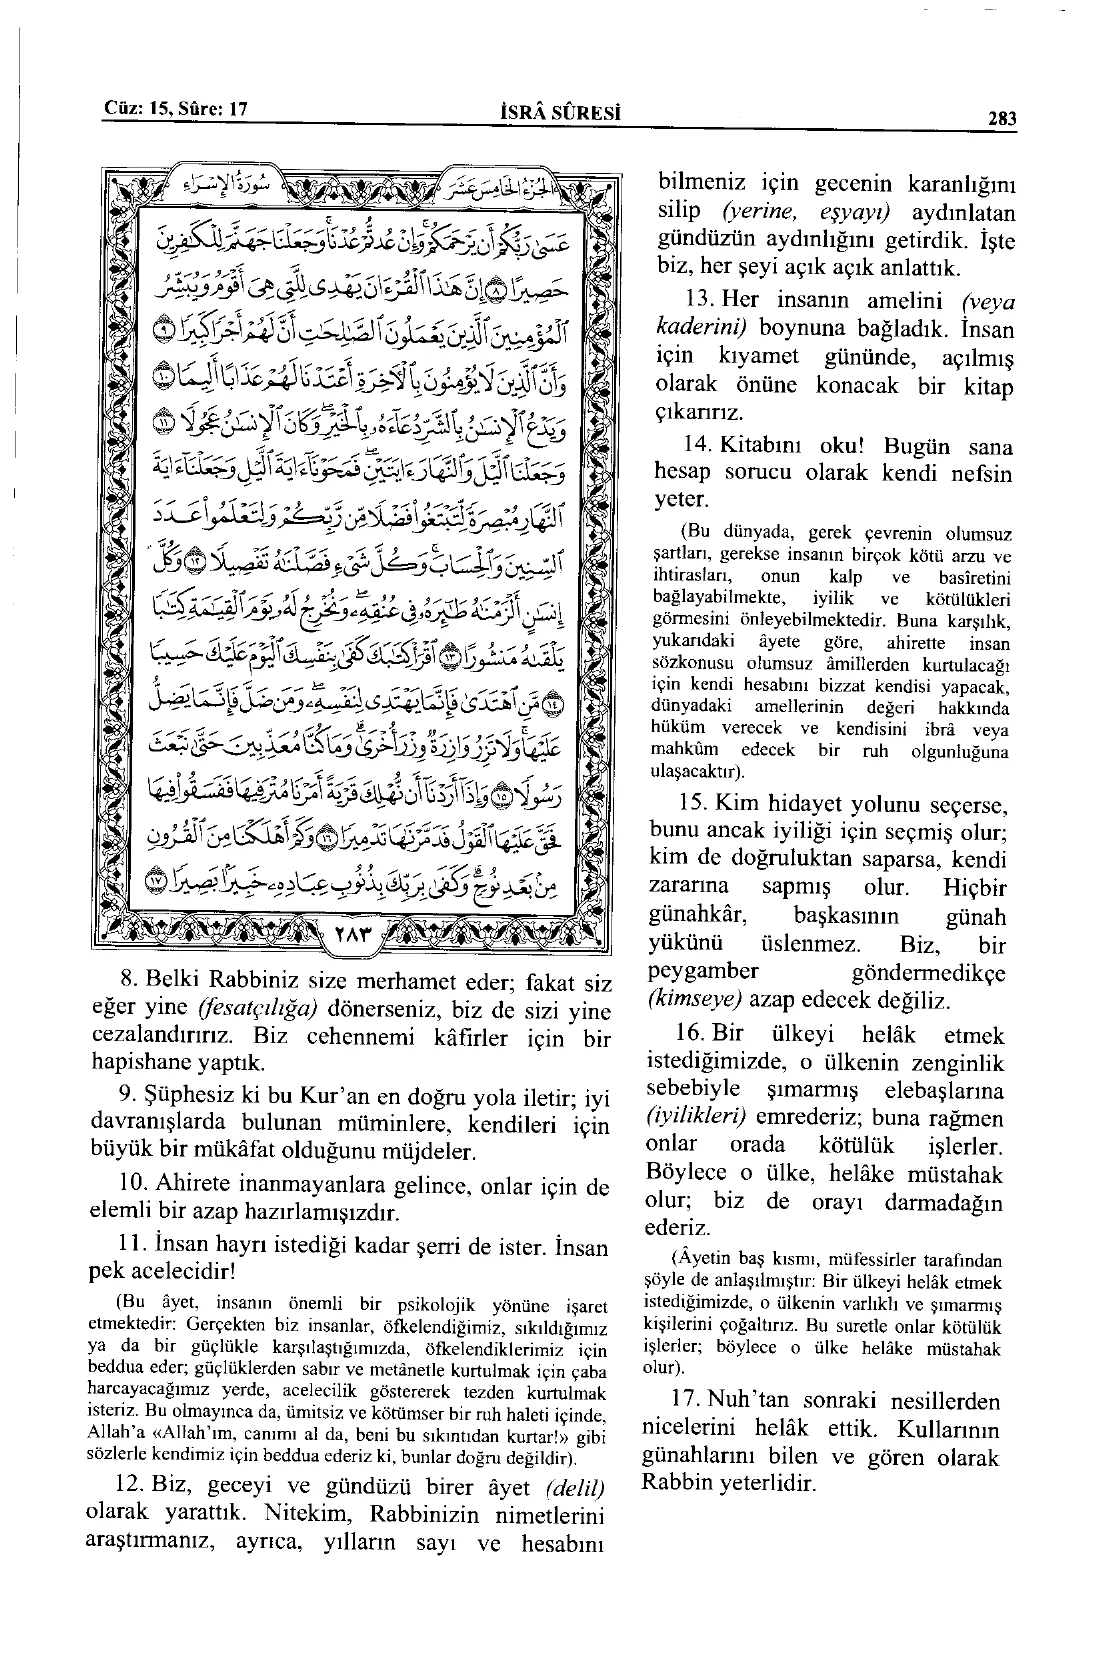 Cüz: 15, Sûre: 17
İSRÂ SÛRESİ
283
سُورَةُ الإِسْرَاءِ
الجُزْءُ الخَامِسُ عَشَرَ
عَسٰى رَبُّكُمْ اَنْ يَرْحَمَكُمْۚ وَاِنْ عُدْتُمْ عُدْنَاۘ وَجَعَلْنَا جَهَنَّمَ لِلْكَافِرِينَ
حَصِيرًا ﴿٨﴾ اِنَّ هٰذَا الْقُرْاٰنَ يَهْدِى لِلَّتِى هِىَ اَقْوَمُ وَيُبَشِّرُ
الْمُؤْمِنِينَ الَّذِينَ يَعْمَلُونَ الصَّالِحَاتِ اَنَّ لَهُمْ اَجْرًا كَبِيرًا ﴿٩﴾
وَاَنَّ الَّذِينَ لَا يُؤْمِنُونَ بِالْاٰخِرَةِ اَعْتَدْنَا لَهُمْ عَذَابًا اَلِيمًا ﴿١٠﴾
وَيَدْعُ الْاِنْسَانُ بِالشَّرِّ دُعَاءَهُ بِالْخَيْرِۜ وَكَانَ الْاِنْسَانُ عَجُولًا ﴿١١﴾
وَجَعَلْنَا الَّيْلَ وَالنَّهَارَ اٰيَتَيْنِ فَمَحَوْنَا اٰيَةَ الَّيْلِ وَجَعَلْنَا اٰيَةَ
النَّهَارِ مُبْصِرَةً لِتَبْتَغُوا فَضْلًا مِنْ رَبِّكُمْ وَلِتَعْلَمُوا عَدَدَ
السِّنِينَ وَالْحِسَابَۜ وَكُلَّ شَىْءٍ فَصَّلْنَاهُ تَفْصِيلًا ﴿١٢﴾ وَكُلَّ
اِنْسَانٍ اَلْزَمْنَاهُ طَائِرَهُ فِى عُنُقِهِۜ وَنُخْرِجُ لَهُ يَوْمَ الْقِيٰمَةِ كِتَابًا
يَلْقٰيهُ مَنْشُورًا ﴿١٣﴾ اِقْرَأْ كِتَابَكَۜ كَفٰى بِنَفْسِكَ الْيَوْمَ عَلَيْكَ حَسِيبًا
﴿١٤﴾ مَنِ اهْتَدٰى فَاِنَّمَا يَهْتَدِى لِنَفْسِهِۚ وَمَنْ ضَلَّ فَاِنَّمَا يَضِلُّ
عَلَيْهَاۜ وَلَا تَزِرُ وَازِرَةٌ وِزْرَ اُخْرٰىۜ وَمَا كُنَّا مُعَذِّبِينَ حَتّٰى نَبْعَثَ
رَسُولًا ﴿١٥﴾ وَاِذَا اَرَدْنَا اَنْ نُهْلِكَ قَرْيَةً اَمَرْنَا مُتْرَفِيهَا فَفَسَقُوا فِيهَا
فَحَقَّ عَلَيْهَا الْقَوْلُ فَدَمَّرْنَاهَا تَدْمِيرًا ﴿١٦﴾ وَكَمْ اَهْلَكْنَا مِنَ الْقُرُونِ
مِنْ بَعْدِ نُوحٍۜ وَكَفٰى بِرَبِّكَ بِذُنُوبِ عِبَادِهِ خَبِيرًا بَصِيرًا ﴿١٧﴾
٢٨٣
8. Belki Rabbiniz size merhamet eder; fakat siz
eğer yine (fesatçılığa) dönerseniz, biz de sizi yine
cezalandırırız. Biz cehennemi kâfirler için bir
hapishane yaptık.
9. Şüphesiz ki bu Kur’an en doğru yola iletir; iyi
davranışlarda bulunan müminlere, kendileri için
büyük bir mükâfat olduğunu müjdeler.
10. Ahirete inanmayanlara gelince, onlar için de
elemli bir azap hazırlamışızdır.
11. İnsan hayrı istediği kadar şerri de ister. İnsan
pek acelecidir!
(Bu âyet, insanın önemli bir psikolojik yönüne işaret
etmektedir: Gerçekten biz insanlar, öfkelendiğimiz, sıkıldığımız
ya da bir güçlükle karşılaştığımızda, öfkelendiklerimiz için
beddua eder; güçlüklerden sabır ve metânetle kurtulmak için çaba
harcayacağımız yerde, acelecilik göstererek tezden kurtulmak
isteriz. Bu olmayınca da, ümitsiz ve kötümser bir ruh haleti içinde,
Allah’a «Allah’ım, canımı al da, beni bu sıkıntıdan kurtar!» gibi
sözlerle kendimiz için beddua ederiz ki, bunlar doğru değildir).
12. Biz, geceyi ve gündüzü birer âyet (delil)
olarak yarattık. Nitekim, Rabbinizin nimetlerini
araştırmanız, ayrıca, yılların sayı ve hesabını
bilmeniz için gecenin karanlığını
silip (yerine, eşyayı) aydınlatan
gündüzün aydınlığını getirdik. İşte
biz, her şeyi açık açık anlattık.
13. Her insanın amelini (veya
kaderini) boynuna bağladık. İnsan
için kıyamet gününde, açılmış
olarak önüne konacak bir kitap
çıkarırız.
14. Kitabını oku! Bugün sana
hesap sorucu olarak kendi nefsin
yeter.
(Bu dünyada, gerek çevrenin olumsuz
şartları, gerekse insanın birçok kötü arzu ve
ihtirasları, onun kalp ve basîretini
bağlayabilmekte, iyilik ve kötülükleri
görmesini önleyebilmektedir. Buna karşılık,
yukarıdaki âyete göre, ahirette insan
sözkonusu olumsuz âmillerden kurtulacağı
için kendi hesabını bizzat kendisi yapacak,
dünyadaki amellerinin değeri hakkında
hüküm verecek ve kendisini ibrâ veya
mahkûm edecek bir ruh olgunluğuna
ulaşacaktır).
15. Kim hidayet yolunu seçerse,
bunu ancak iyiliği için seçmiş olur;
kim de doğruluktan saparsa, kendi
zararına sapmış olur. Hiçbir
günahkâr, başkasının günah
yükünü üslenmez. Biz, bir
peygamber göndermedikçe
(kimseye) azap edecek değiliz.
16. Bir ülkeyi helâk etmek
istediğimizde, o ülkenin zenginlik
sebebiyle şımarmış elebaşlarına
(iyilikleri) emrederiz; buna rağmen
onlar orada kötülük işlerler.
Böylece o ülke, helâke müstahak
olur; biz de orayı darmadağın
ederiz.
(Âyetin baş kısmı, müfessirler tarafından
şöyle de anlaşılmıştır: Bir ülkeyi helâk etmek
istediğimizde, o ülkenin varlıklı ve şımarmış
kişilerini çoğaltırız. Bu suretle onlar kötülük
işlerler; böylece o ülke helâke müstahak
olur).
17. Nuh’tan sonraki nesillerden
nicelerini helâk ettik. Kullarının
günahlarını bilen ve gören olarak
Rabbin yeterlidir.